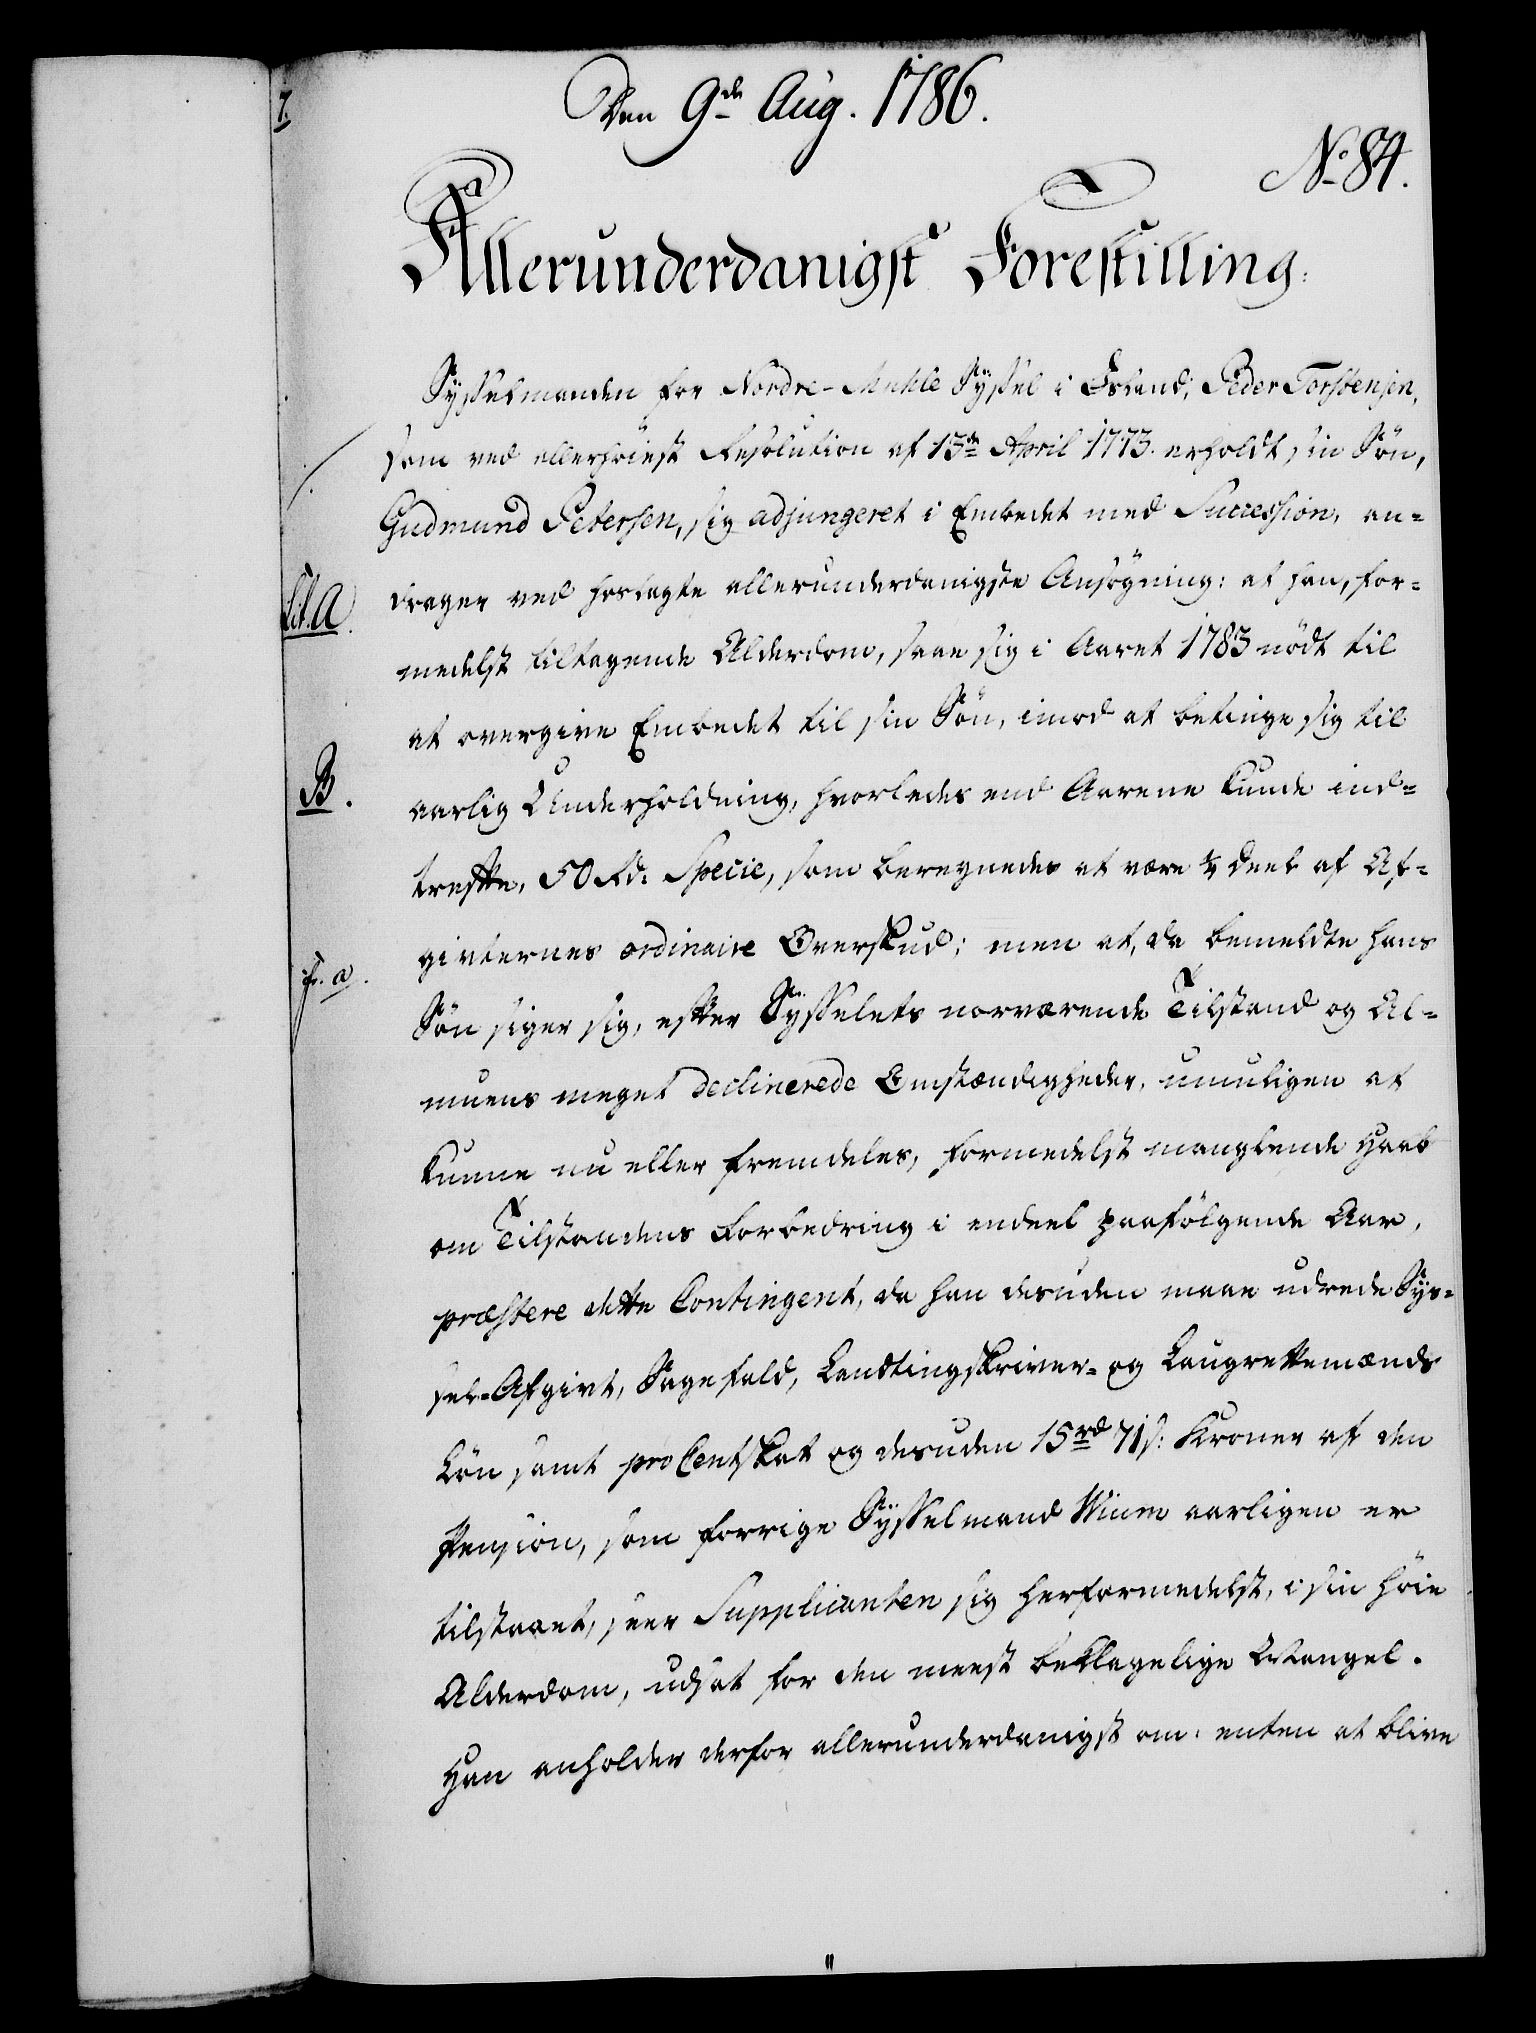 7.
Den 9de Aug. 1786.
No 84.
Allerunderdanigst Forestilling:
Sysselmanden for Nordre-Muhle Syssel i Island, Peder Torstensen,
som ved allerhöiest Resolution af 13de April 1773. erholdt sin Sön,
Gudmund Petersen, sig adjungeret i Embedet med Succession, an-
Lit. A.
drager ved hoslagte allerunderdanigste Ansögning: at han, for-
medelst tiltagende Alderdom, saae sig i Aaret 1783 nödt til
at overgive Embedet til sin Sön, imod at betinge sig til
B.
aarlig Underholdning, hvorledes end Aarene kunde ind-
treffe, 50 Rd. Specie, som beregnedes at være ¼ Deel af Af-
givternes ordinaire Overskud; men at, da bemeldte hans
fr. a.
Sön siger sig, efter Sysselets nærværende Tilstand og Al-
muens meget declinerede Omstændigheder, umuligen at
kunne nu eller fremdeles, formedelst manglende Haab
om Tilstandens Forbedring i endeel paafölgende Aar,
præstere dette Contingent, da han desuden maae udrede Sys-
sel-Afgivt, Sagefald, Landtingskriver- og Laugrettemænds
Lön samt pro Cent Skat og desuden 15 rd 71 s: Kroner af den
Pension, som forrige Sysselmand Wium aarligen er
tilstaaet, seer Supplicanten sig herformedelst, i sin höie
Alderdom, udsat for den meest beklagelige Mangel.
Han anholder derfor allerunderdanigst om: enten at blive